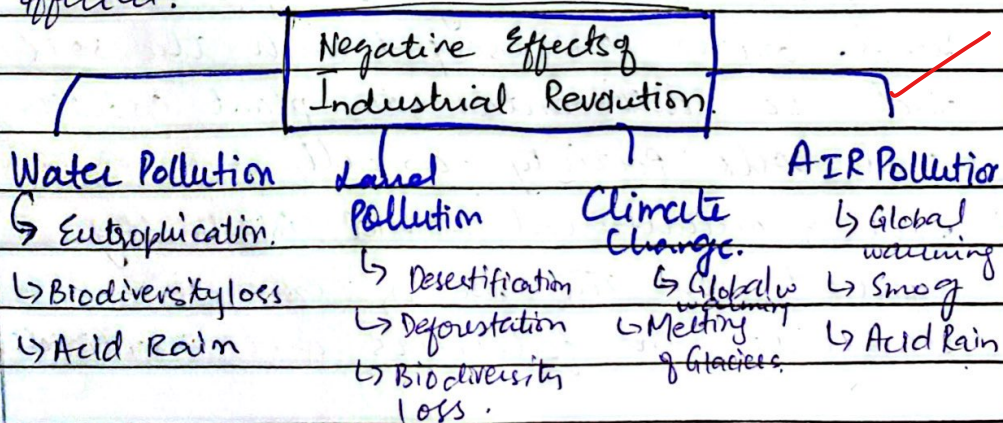 Negative Effects of
Industrial Revolution.
Water Pollution
↳ Eutrophication.
↳ Biodiversity loss
↳ Acid Rain
Land
Pollution
↳ Desertification
↳ Deforestation
↳ Biodiversity
loss.
Climate
Change.
↳ Global w
warming
↳ Melting
of Glaciers.
AIR Pollution
↳ Global
warming
↳ Smog
↳ Acid Rain